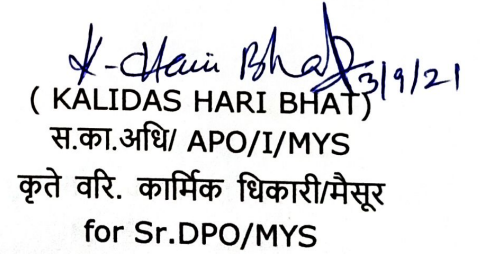 K-Hari Bhat 3/9/21
( KALIDAS HARI BHAT)
स.का.अधि/ APO/I/MYS
कृते वरि. कार्मिक धिकारी/मैसूर
for Sr.DPO/MYS